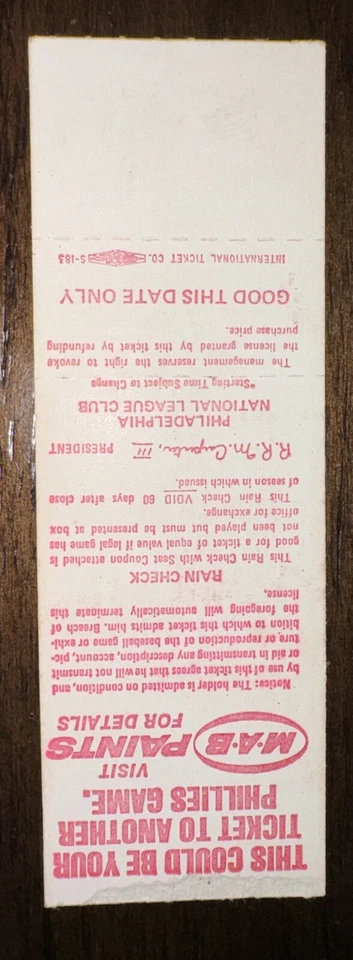 THIS COULD BE YOUR
TICKET TO ANOTHER
PHILLIES GAME.
VISIT
M·A·B PAINTS
FOR DETAILS
Notice: The holder is admitted on condition, and
by use of this ticket agrees that he will not transmit
or aid in transmitting any description, account, pic-
ture, or reproduction of the baseball game or exhi-
bition to which this ticket admits him. Breach of
the foregoing will automatically terminate this
license.
RAIN CHECK
This Rain Check with Seat Coupon attached is
good for a ticket of equal value if legal game has
not been played but must be presented at box
office for exchange.
This Rain Check VOID 60 days after close
of season in which issued.
R. R. M. Carpenter, III PRESIDENT
PHILADELPHIA
NATIONAL LEAGUE CLUB
*Starting Time Subject to Change
The management reserves the right to revoke
the license granted by this ticket by refunding
purchase price.
GOOD THIS DATE ONLY
INTERNATIONAL TICKET CO. S-185